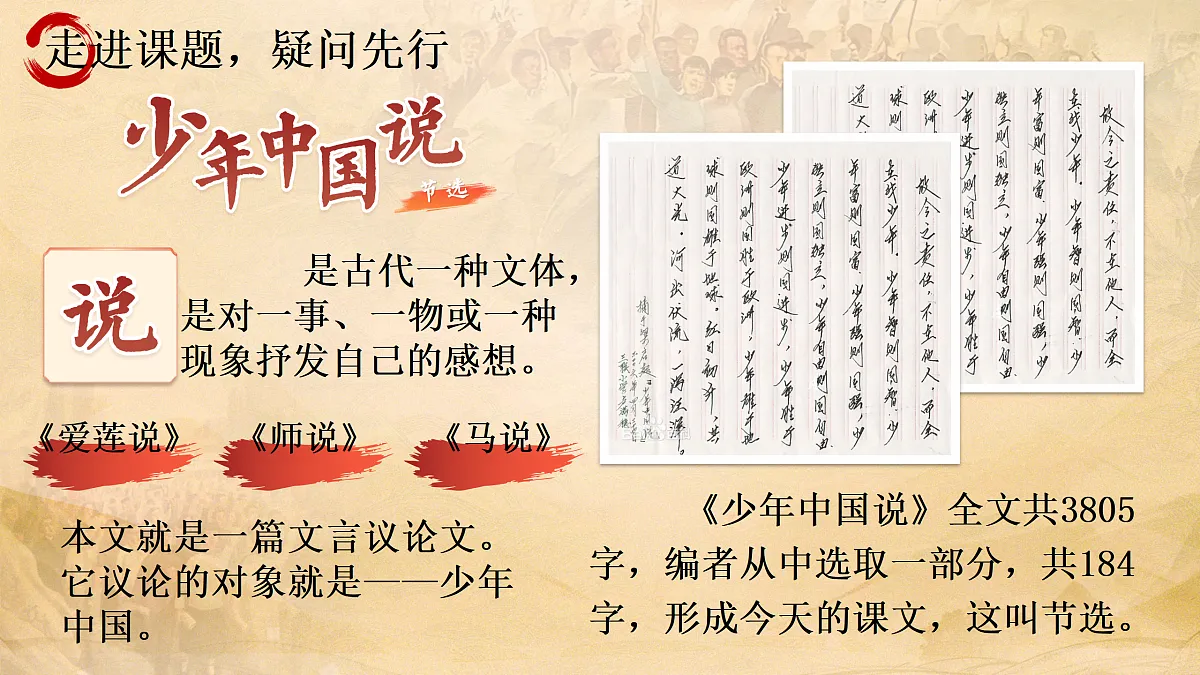 走进课题，疑问先行
少年中国说
节选
说
是古代一种文体，
是对一事、一物或一种
现象抒发自己的感想。
《爱莲说》
《师说》
《马说》
本文就是一篇文言议论文。
它议论的对象就是——少年
中国。
故今之责任，不在他人，而全
在我少年。少年智则国智，少
年富则国富，少年强则国强，少
独立则国独立，少年自由则国自由
少年进步则国进步，少年胜于
欧洲
球则
道大
故今之责任，不在他人，而全
在我少年。少年智则国智，少
年富则国富，少年强则国强，少
独立则国独立，少年自由则国自由
少年进步则国进步，少年胜于
欧洲则国胜于欧洲，少年雄于地
球则国雄于地球。红日初升，其
道大光，河出伏流，一泻汪洋。
《少年中国说》全文共3805
字，编者从中选取一部分，共184
字，形成今天的课文，这叫节选。